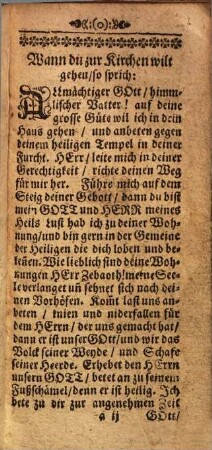 :(o):
Wann du zur Kirchen wilt
gehen/ so sprich:
Allmächtiger GOtt/ himm-
lischer Vatter! auf deine
grosse Güte wil ich in dein
Haus gehen/ und anbeten gegen
deinem heiligen Tempel in deiner
Furcht. HErr/ leite mich in deiner
Gerechtigkeit/ richte deinen Weg
für mir her. Führe mich auf dem
Steig deiner Gebott/ dann du bist
mein GOTT und HERR meines
Heils Lust hab ich zu deiner Woh-
nung/ und bin gern in der Gemeine
der Heiligen die dich loben und be-
kennen. Wie lieblich sind deine Woh-
nungen HErr Zebaoth! meine See-
le verlanget uñ sehnet sich nach dei-
nen Vorhöfen. Kom̃t last uns an-
beten/ knien und niderfallen für
dem HErrn/ der uns gemacht hat/
dann er ist unser GOtt/ und wir das
Volck seiner Weyde/ und Schafe
seiner Heerde. Erhebet den HErrn
unsern GOTT/ betet an zu seinem
Fußschämel/ denn er ist heilig. Ich
bete zu dir zur angenehmen Zeit
a ij GOtt/